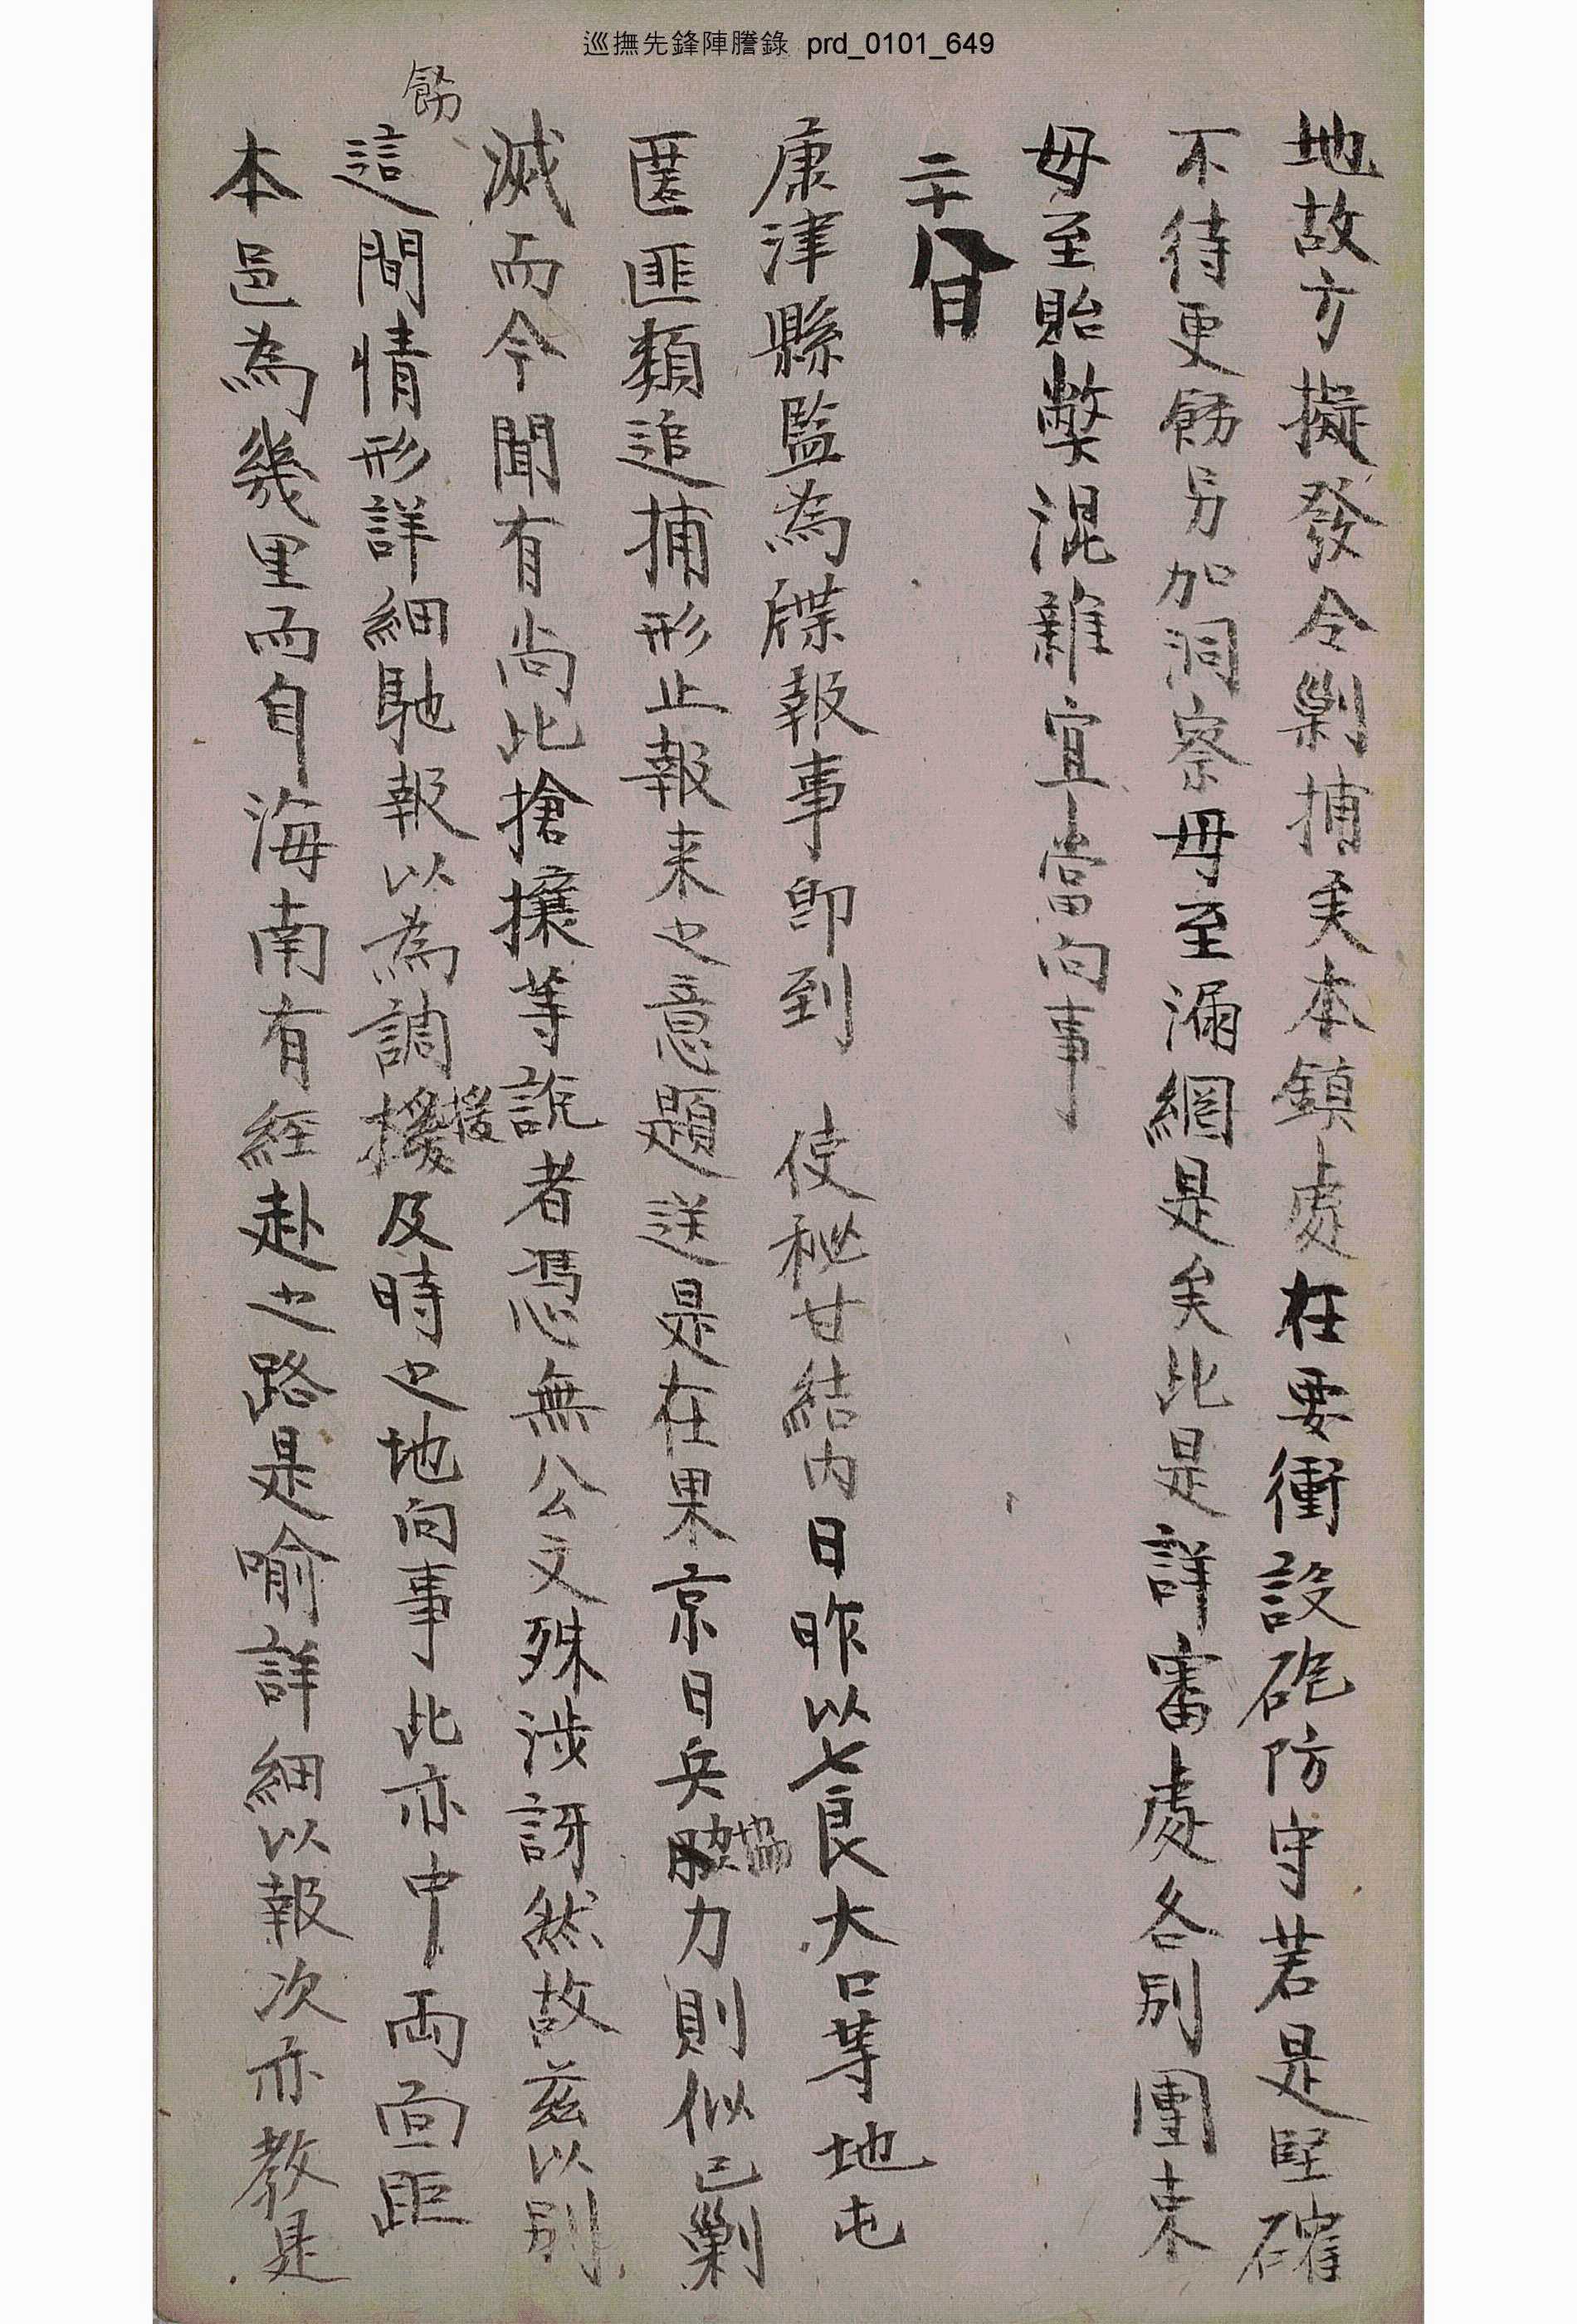 巡撫先鋒陣謄錄 prd_0101_649
地故方擬發令剿捕矣本鎮處在要衝設砲防守若是堅確
不待更飭另加洞察毋至漏網是矣此是詳審處各別團束
毋至貽弊混雜宜當向事
二十八日
康津縣監為牒報事卽到 使秘甘結內日昨以七良大口等地屯
匿匪類追捕形止報来之意題送是在果京日兵協力則似已剿
滅而今聞有尚此搶攘等說者憑無公文殊涉訝然故茲以別
飭
這間情形詳細馳報以為調援及時之地向事此亦中兩面距
本邑為幾里而自海南有經赴之路是喻詳細以報次亦教是